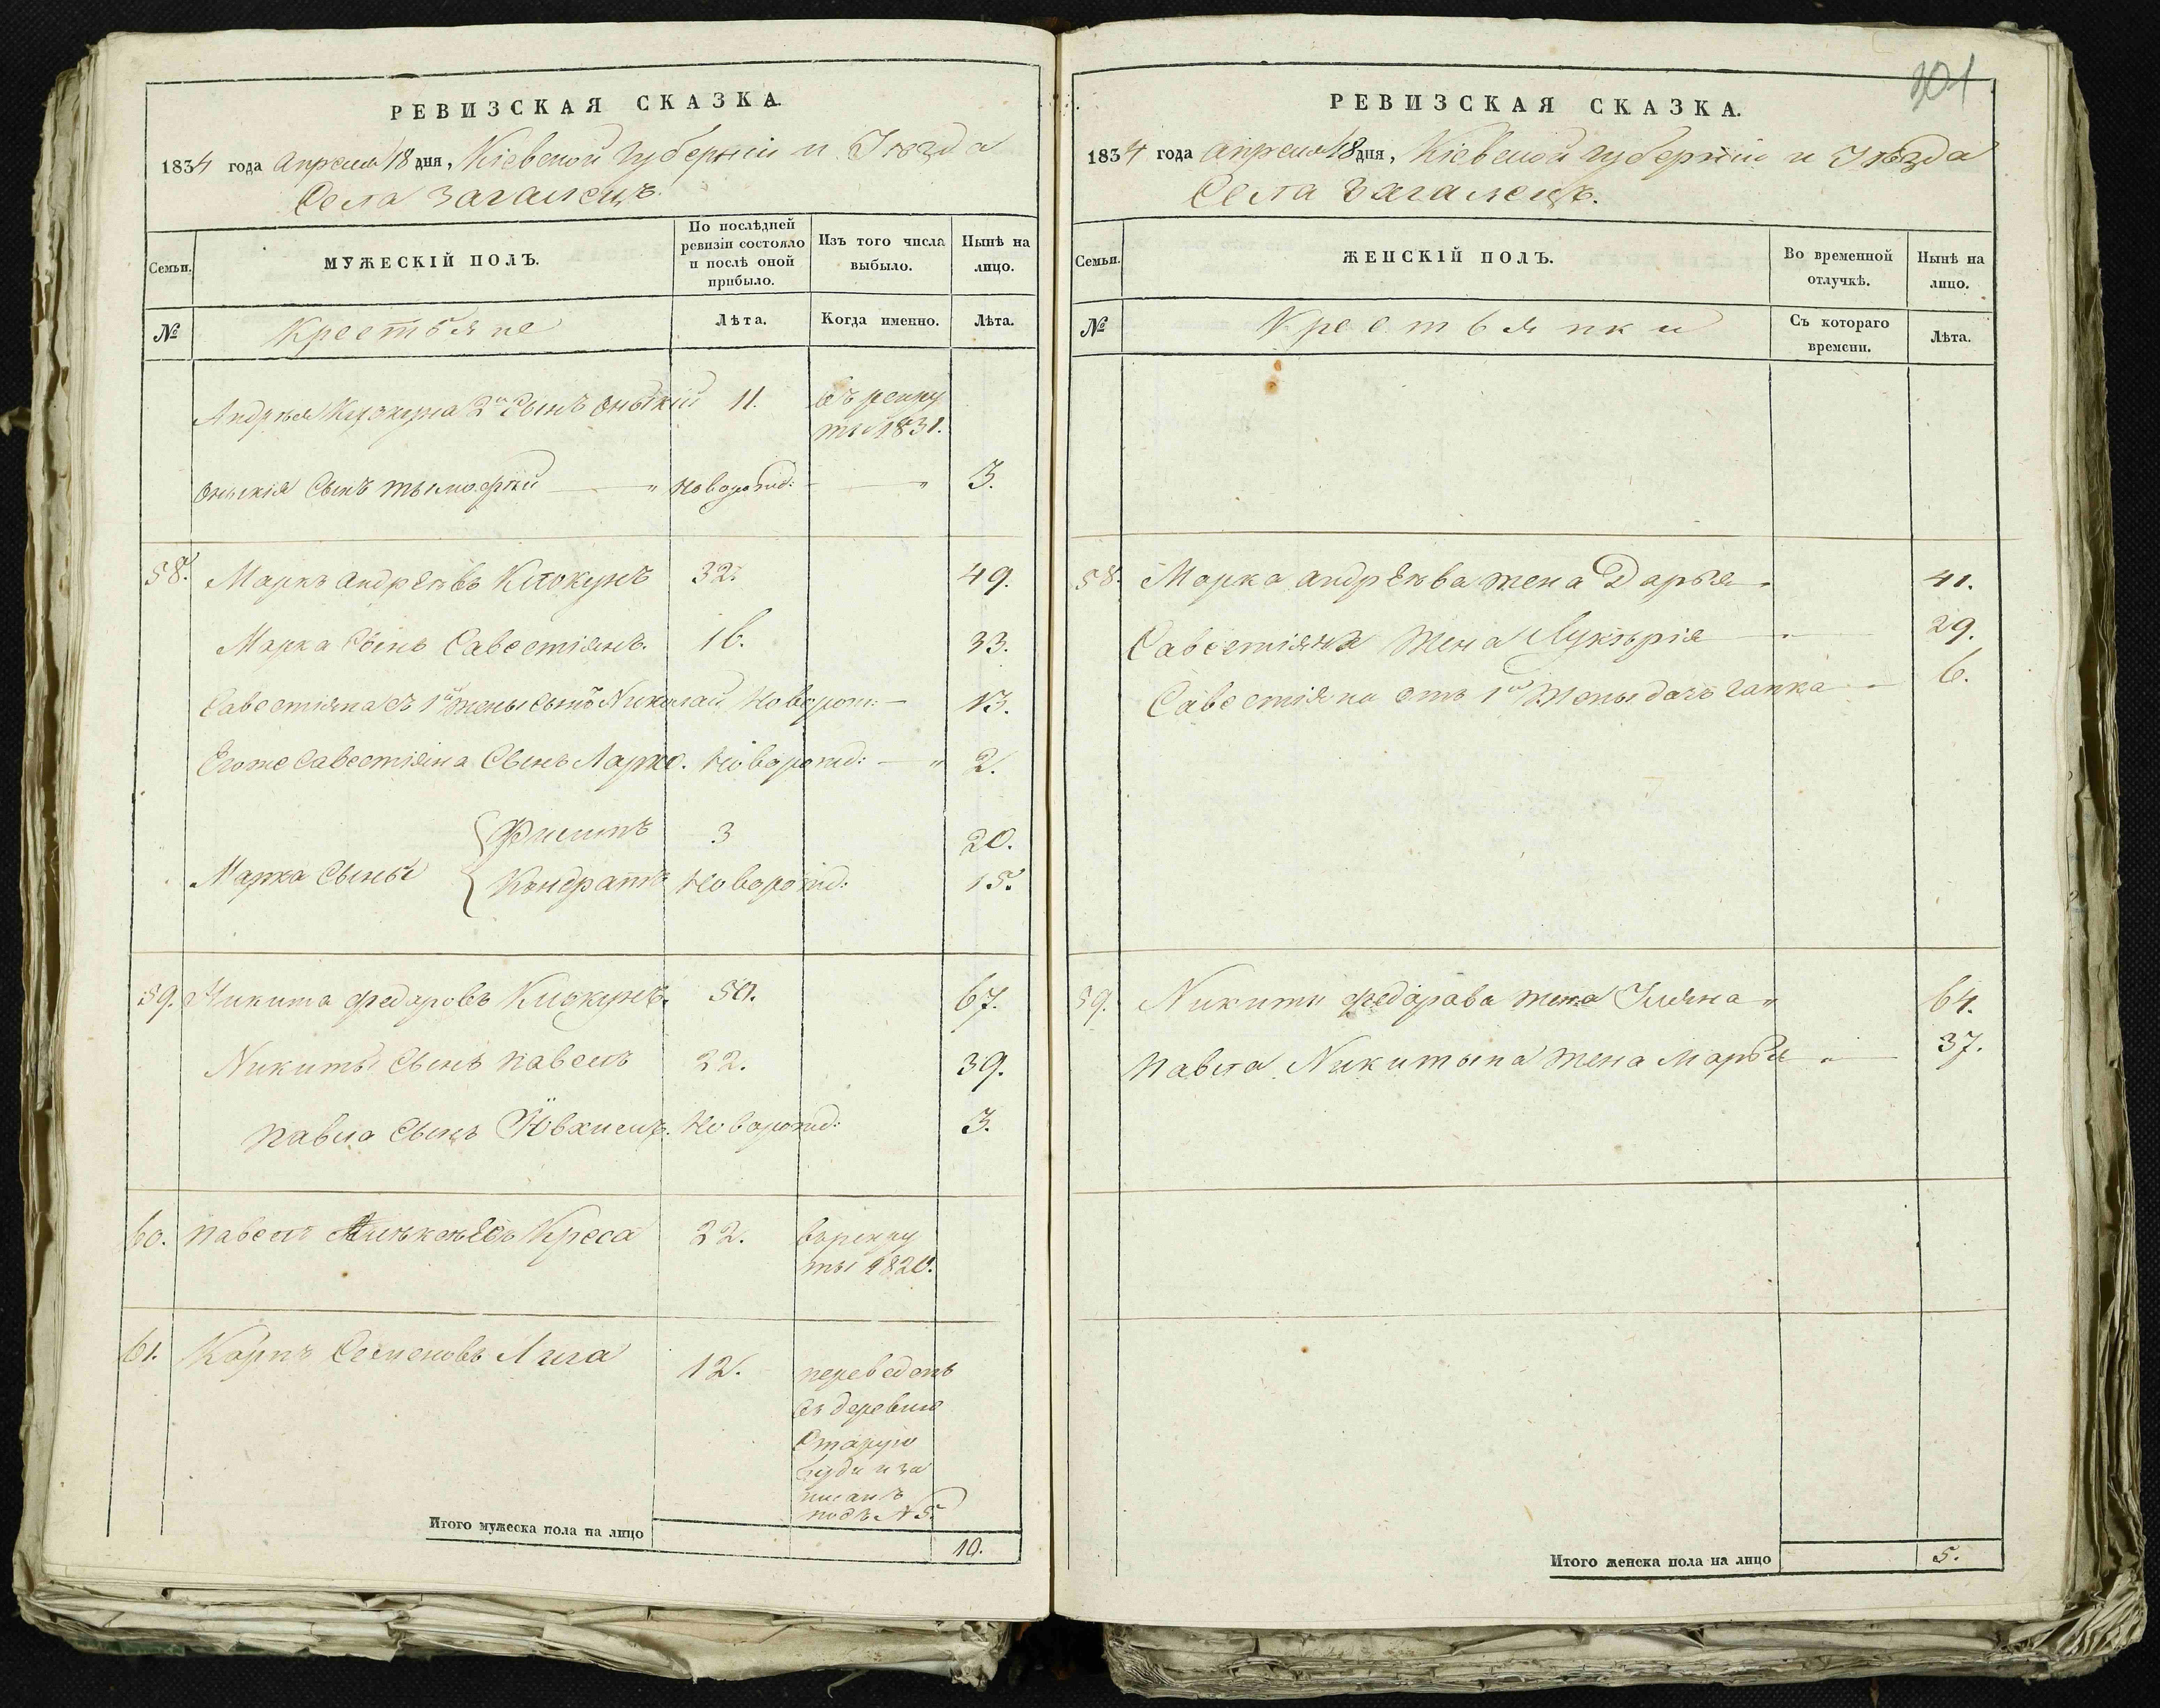 РЕВИЗСКАЯ СКАЗКА.
1834 года Апреля 18 дня, Кіевской Губерніи и Уѣзда
Села Загалецъ.
Семьи.
МУЖЕСКІЙ ПОЛЪ.
По послѣдней ревизіи состояло и послѣ оной прибыло.
Изъ того числа выбыло.
Нынѣ на лицо.
№
Крестьяне
Лѣта.
Когда именно.
Лѣта.
Андрея Клокуна 2й Сынъ Оныскій 11. въ рекру
ты 1831.
Оныскія Сынъ тымофій " Новорожд: " 3.
58. Маркъ Андрѣевъ Клокунъ 32. 49.
Марка Сынъ Савостіянъ. 16. 33.
Савостіяна съ 1й жены сынъ Николай Новорож: 13.
Егоже Савостіяна Сынъ Марко. Новорожд: " 2.
Филипъ 3 20.
Марка Сыны
Кондратъ Новорожд: 15.
59. Никита Федоровъ Клокунъ. 50. 67.
Никиты Сынъ Павелъ 22. 39.
Павла Сынъ Ювхимъ. Новорожд: 3.
60. Павелъ Креса 22. в рекру
ты 1820.
61. Карпъ Семеновъ Лига 12. переведенъ
въ деревню
Старую
Буду и за
писанъ
подъ №5.
Итого мужеска пола на лицо 10.
301
РЕВИЗСКАЯ СКАЗКА.
1834 года Апреля 18 дня, Кіевской Губерніи и Уѣзда
Села Загалецъ.
Семьи.
ЖЕНСКІЙ ПОЛЪ.
Во временной отлучкѣ.
Нынѣ на лицо.
№
Крестьянки
Съ котораго времени.
Лѣта.
58. Марка Андрѣева жена Дарья " 41.
Савостіяна Жена Лукѣрія " 29.
Савостіяна отъ 1й Жены дочь Гапка " 6.
59. Никиты Федорова жена Уляна " 64.
Павла Никитына жена Марья " 37.
Итого женска пола на лицо 5.